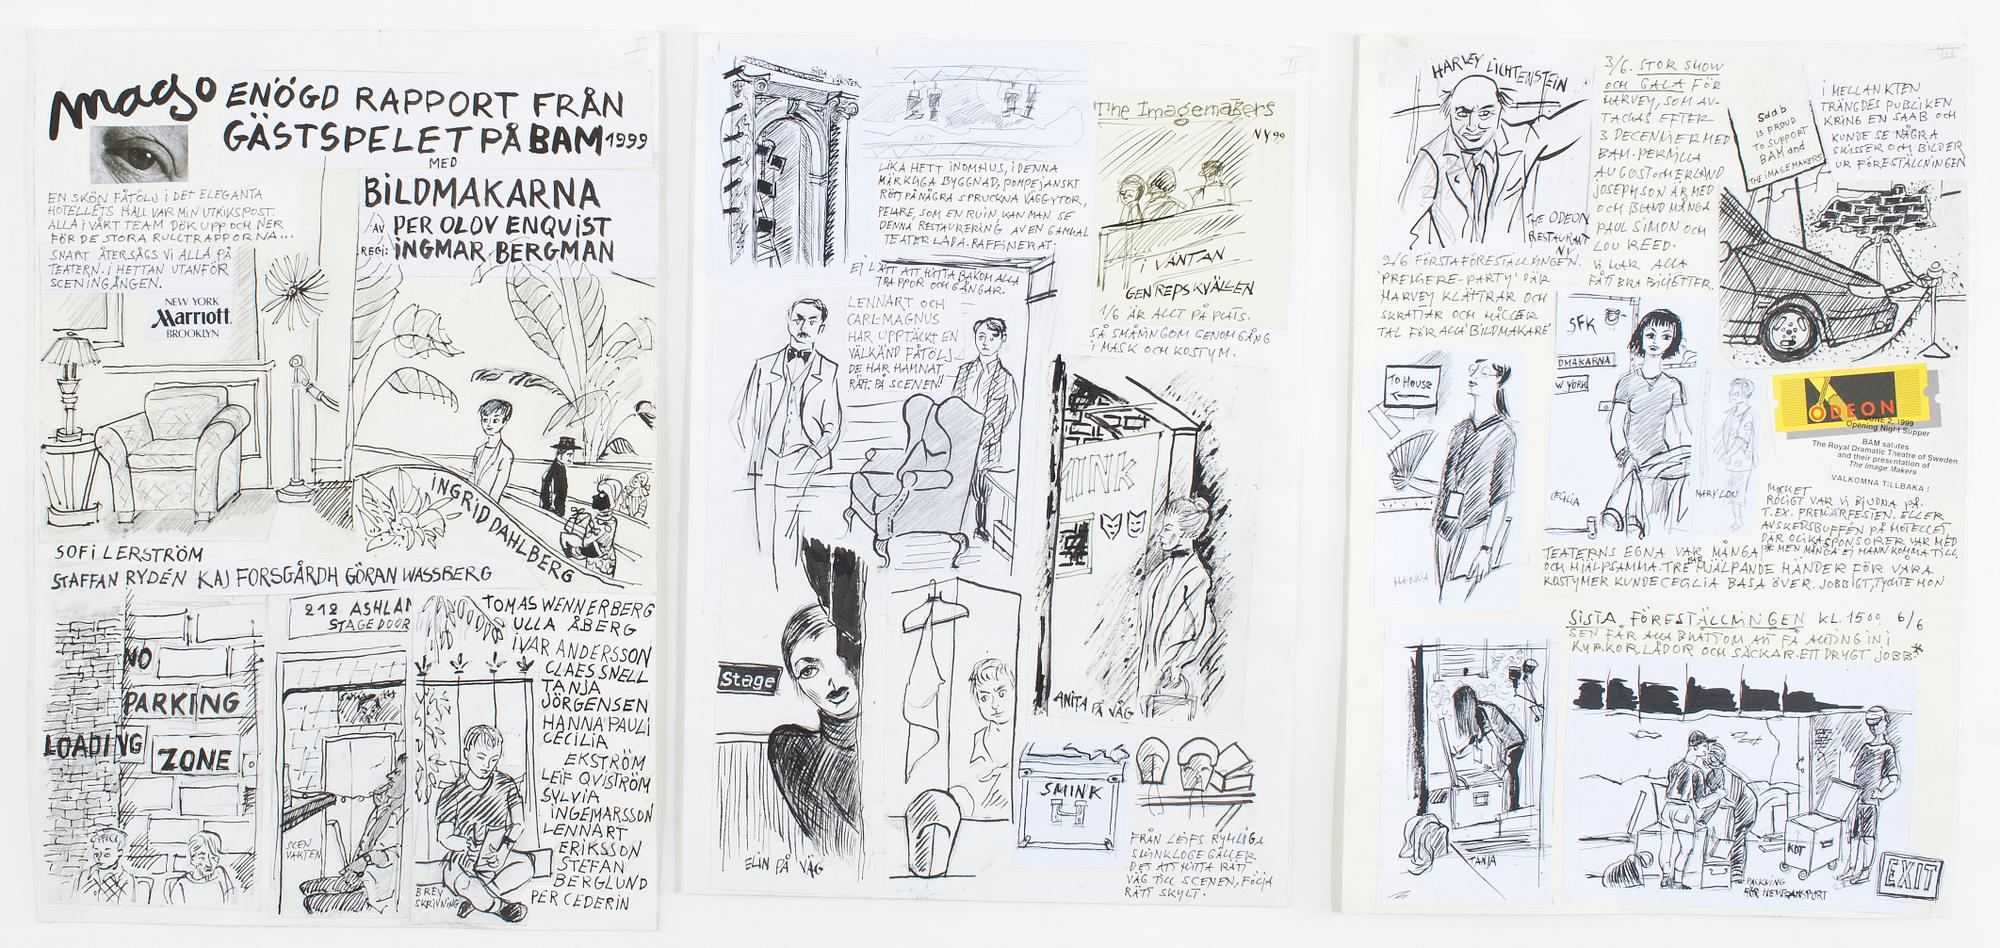 I
mago
ENÖGD RAPPORT FRÅN
GÄSTSPELET PÅ BAM 1999
MED
BILDMAKARNA
AV PER OLOV ENQUIST
REGI: INGMAR BERGMAN
EN SKÖN FÅTÖLJ I DET ELEGANTA
HOTELLETS HALL VAR MIN UTKIKSPOST.
ALLA I VÅRT TEAM DÖK UPP OCH NER
FÖR DE STORA RULLTRAPPORNA...
SNART ÅTERSÅGS VI ALLA PÅ
TEATERN. I HETTAN UTANFÖR
SCENINGÅNGEN.
NEW YORK
Marriott
BROOKLYN
INGRID DAHLBERG
SOFI LERSTRÖM
STAFFAN RYDÉN KAJ FORSGÅRDH GÖRAN WASSBERG
NO
PARKING
LOADING
ZONE
212 ASHLAN
STAGEDOOR
SCEN
VAKTEN
BREV
SKRIVNING
TOMAS WENNERBERG
ULLA ÅBERG
IVAR ANDERSSON
CLAES SNELL
TANJA
JÖRGENSEN
HANNA PAULI
CECILIA
EKSTRÖM
LEIF QVISTRÖM
SYLVIA
INGEMARSSON
LENNART
ERIKSSON
STEFAN
BERGLUND
PER CEDERIN
II
LIKA HETT INOMHUS, I DENNA
MÄRKLIGA BYGGNAD, POMPEJANSKT
RÖTT PÅ NÅGRA SPRUCKNA VÄGGYTOR,
PELARE, SOM EN RUIN KAN MAN SE
DENNA RESTAURERING AV EN GAMMAL
TEATERLADA. RAFFINERAT.
EJ LÄTT ATT HITTA BAKOM ALLA
TRAPPOR OCH GÅNGAR.
The Imagemakers
NY 99
I VÄNTAN
GENREPSKVÄLLEN
1/6 ÄR ALLT PÅ PLATS.
SÅ SMÅNINGOM GENOMGÅNG
I MASK OCH KOSTYM.
LENNART OCH
CARL-MAGNUS
HAR UPPTÄCKT EN
VÄLKÄND FÅTÖLJ
DE HAR HAMNAT
RÄTT. PÅ SCENEN!
SMINK
ANITA PÅ VÄG
Stage
ELIN PÅ VÄG
SMINK
FRÅN LEIFS RYMLIGA
SMINKLOGE GÄLLER
DET ATT HITTA RÄTT
VÄG TILL SCENEN, FÖLJA
RÄTT SKYLT.
III
HARVEY LICHTENSTEIN
THE ODEON
RESTAURANT
NY
2/6 FÖRSTA FÖRESTÄLLNINGEN.
'PREMIERE-PARTY' DÄR
HARVEY KLÄTTRAR OCH
SKRATTAR OCH HÅLLER
TAL FÖR ALLA 'BILDMAKARE'
3/6. STOR SHOW
OCH GALA FÖR
HARVEY, SOM AV-
TACKAS EFTER
3 DECENNIER MED
BAM. PERNILLA
AUGUST OCH ERLAND
JOSEPHSON ÄR MED
OCH BLAND MÅNGA
PAUL SIMON OCH
LOU REED.
VI HAR ALLA
FÅTT BRA BILJETTER.
Saab
IS PROUD
To SUPPORT
BAM and
THE IMAGEMAKERS
I MELLANAKTEN
TRÄNGDES PUBLIKEN
KRING EN SAAB OCH
KUNDE SE NÅGRA
SKISSER OCH BILDER
UR FÖRESTÄLLNINGEN
TO HOUSE
HANNA
SFK
DMAKARNA
W YORK
CECILIA
MARY LOU
ODEON
JUNE 2, 1999
Opening Night Supper
BAM salutes
The Royal Dramatic Theatre of Sweden
and their presentation of
The Image Makers
VALKOMNA TILLBAKA !
MYCKET
ROLIGT VAR VI BJUDNA PÅ,
T.EX. PREMIÄRFESTEN. ELLER
AVSKEDSBUFFÉN PÅ HOTELLET
DÄR OLIKA SPONSORER VAR MED
* MEN MÅNGA EJ HANN KOMMA TILL.
TEATERNS EGNA VAR MÅNGA
OCH HJÄLPSAMMA. TRE PAR HJÄLPANDE HÄNDER FÖR VÅRA
KOSTYMER KUNDE CECILIA BASA ÖVER. JOBBIGT, TYCKTE HON
SISTA FÖRESTÄLLNINGEN KL. 1500 6/6
SEN FÅR ALLA BRÅTTOM ATT FÅ ALLTING IN I
KYRKORLÅDOR OCH SÄCKAR. ETT DRYGT JOBB*
TANJA
KDT
PACKNING
FÖR HEMTRANSPORT
EXIT